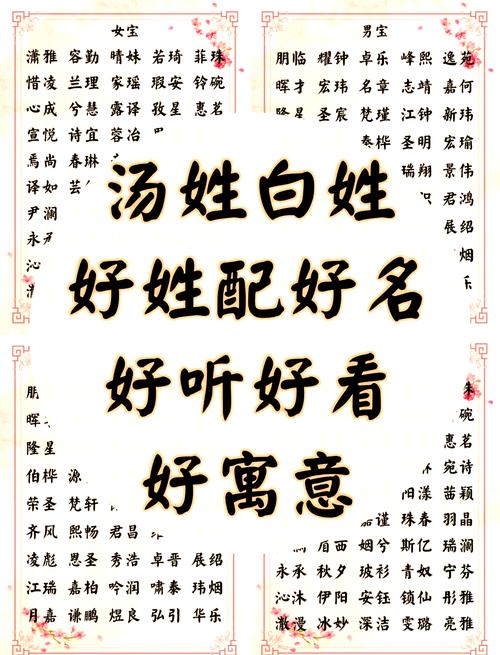 女宝
潇雅 容勤 晴妹 若琦 菲珠
惜凌 兰理 家瑶 瑕安 铃碗
心成 兮慧 露译 孜星 惠茗
宣悦 诗宜 蓉冶
焉尚 春琳
译如 芸
尹澜
永
沁
男宝
朋临 耀钟 卓乐 峰熙 逸苑
晖才 宏玮 名章 志靖 嘉何
隆星 圣宸 梵瑾 江钟 新玮
泰桦 圣明 宏瑜
瑞翔 景伟
君鸿
展绍
烟
乐
汤姓白姓
好姓配好名
好听好看
好寓意
朋
晖
隆星
伯桦 源
荣圣 梵轩
齐风 熙畅 君昌
凌彪 恩圣 秀浩 卓晋 展绍
江瑞 嘉柏 吟润 啸泰 玮烟
月嘉 谦鹏 煜良 弘引 华乐
碗
惠茗
宛诗
阳漾 茵颖
谨 珠春 羽晶
眉西 姻兮 斯亿 瑞澜
永承 秋夕 玻衫 青奴 宁芬
沁沐 伊阳 安钰 锁仙 彤雅
澈漫 冰妙 深洁 雯璐 亮雅